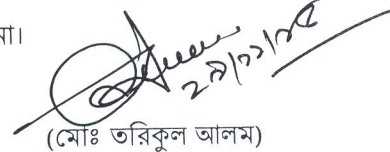 না।
২৯/১১/২৫
(মোঃ তরিকুল আলম)